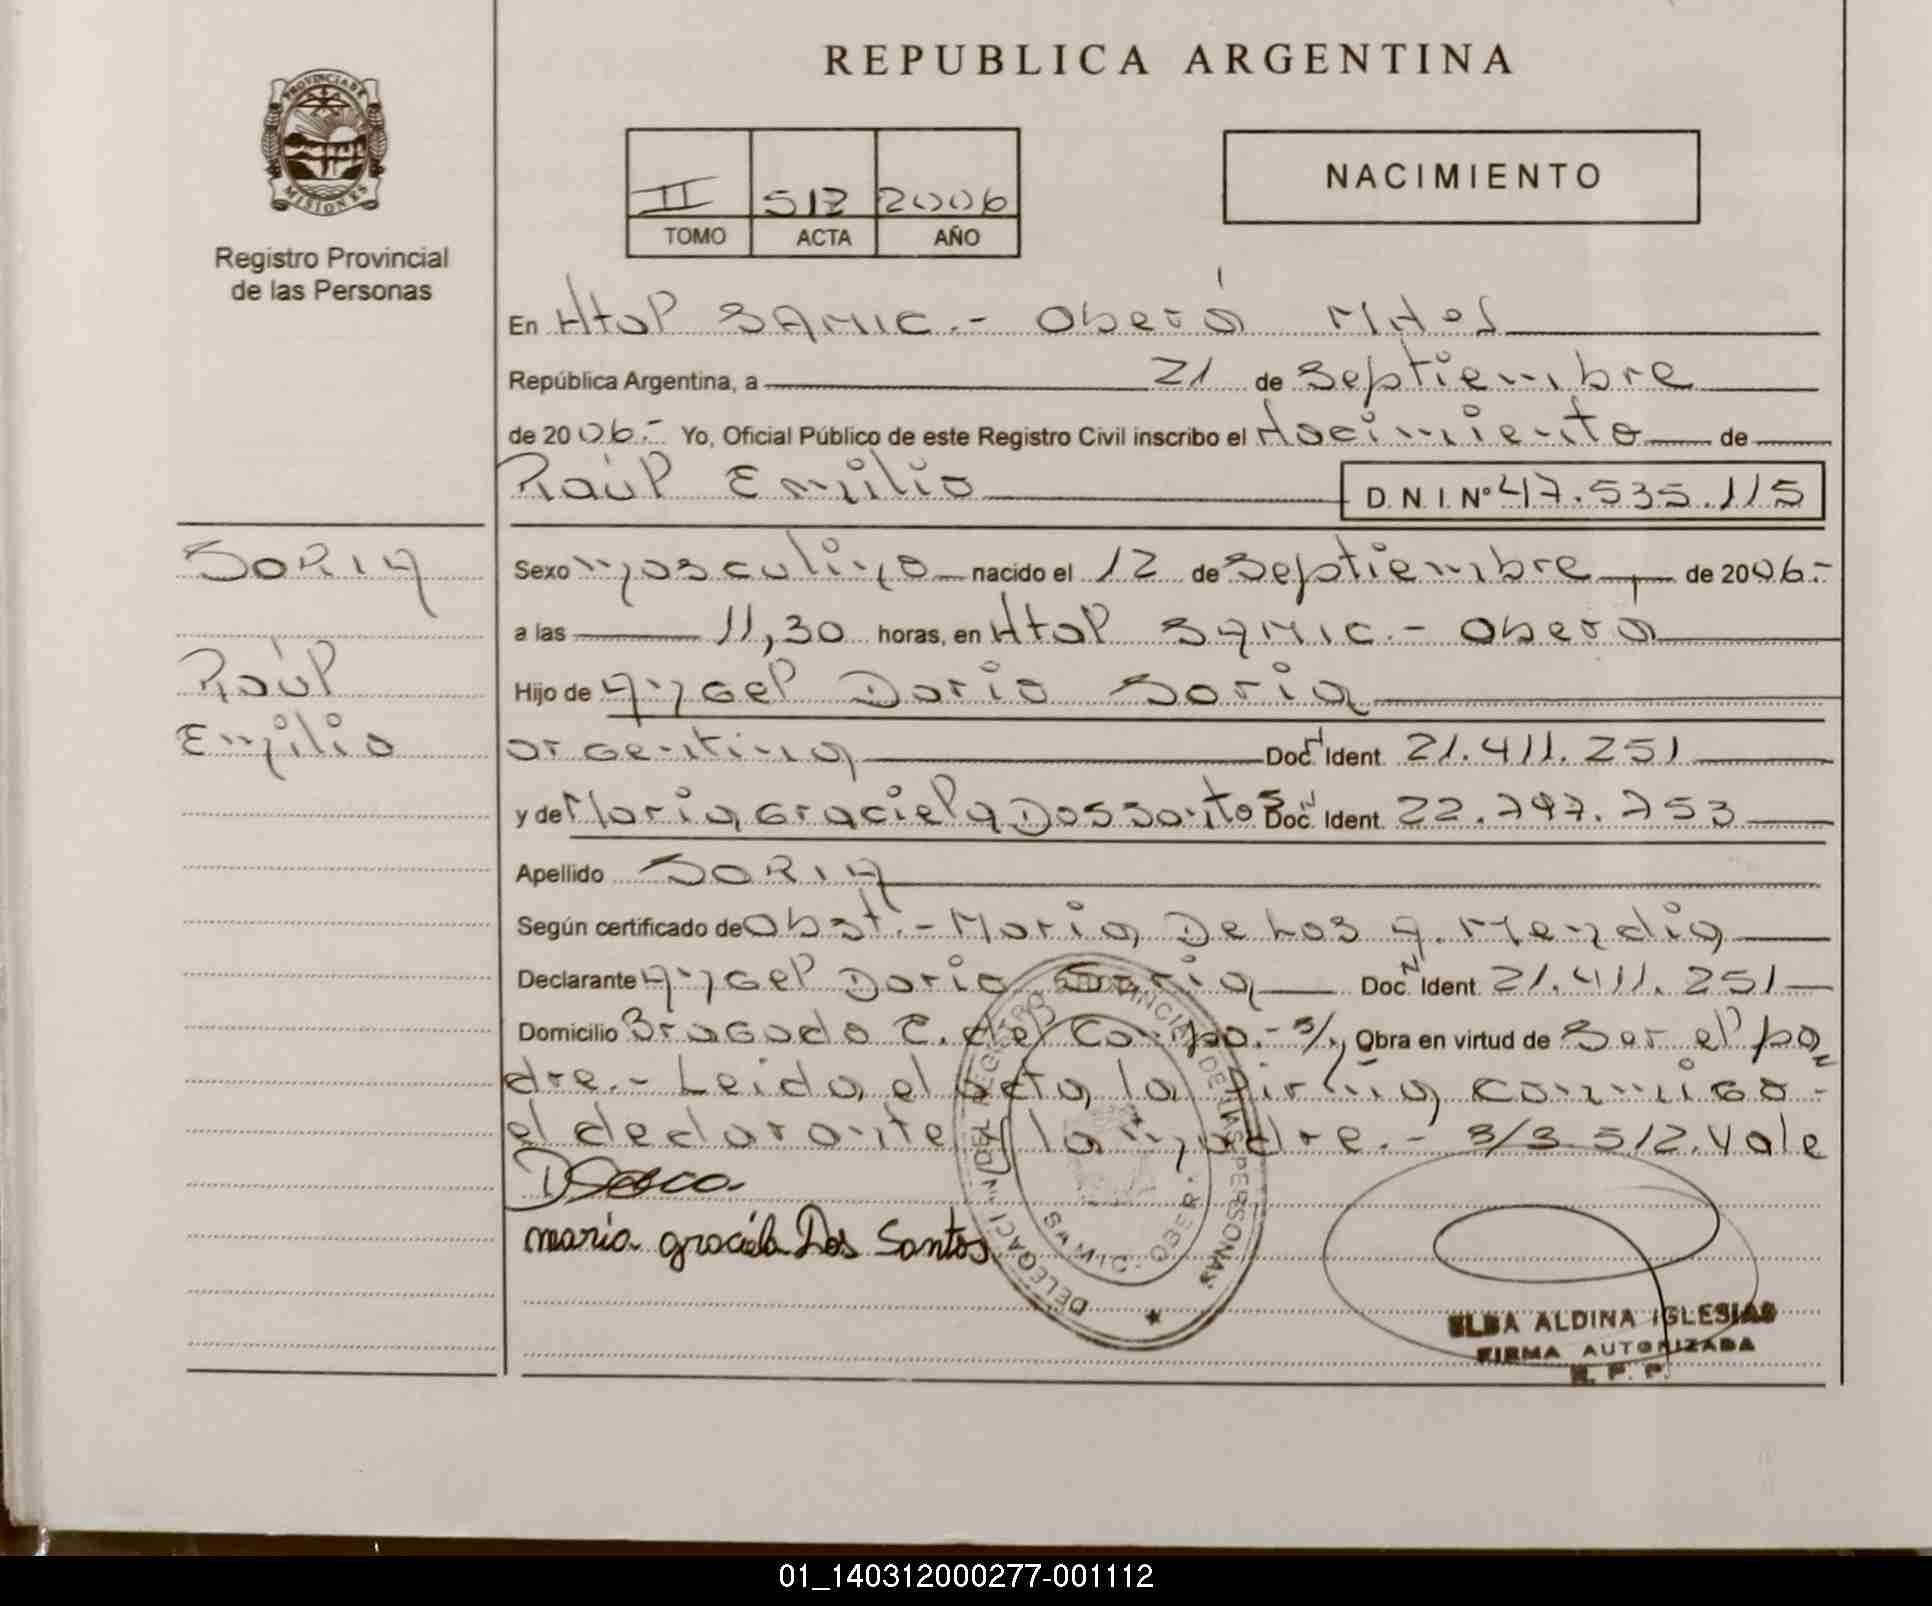 REPUBLICA ARGENTINA
PROVINCIA DE MISIONES
Registro Provincial
de las Personas
II 512 2006
TOMO ACTA AÑO
NACIMIENTO
En Htal SAMIC.- Oberá Mnes
República Argentina, a 21 de Septiembre
de 2006.- Yo, Oficial Público de este Registro Civil inscribo el Nacimiento de
Raúl Emilio D. N. I. Nº 47.535.115
SORIA
Raúl
Emilio
Sexo masculino nacido el 12 de Septiembre de 2006.-
a las 11,30 horas, en Htal SAMIC.- Oberá
Hijo de Angel Dario Soria
argentina Doc. Ident. 21.411.251
y de Maria Graciela Dos Santos Doc. Ident. 22.797.753
Apellido SORIA
Según certificado de Obst.- Maria De Los A. Mendia
Declarante Angel Dario Soria Doc. Ident. 21.411.251
Domicilio Bragado C. del Campo.- s/n, Obra en virtud de Ser el pa
dre.- Leida el acta la firma conmigo
el declarante y la madre.- S/R 512. Vale
maria graciela Dos Santos
DELEGACION DEL REGISTRO PROVINCIAL DE LAS PERSONAS
SAMIC - OBERA
ELBA ALDINA IGLESIAS
FIRMA AUTORIZADA
R. P. P.
01_140312000277-001112